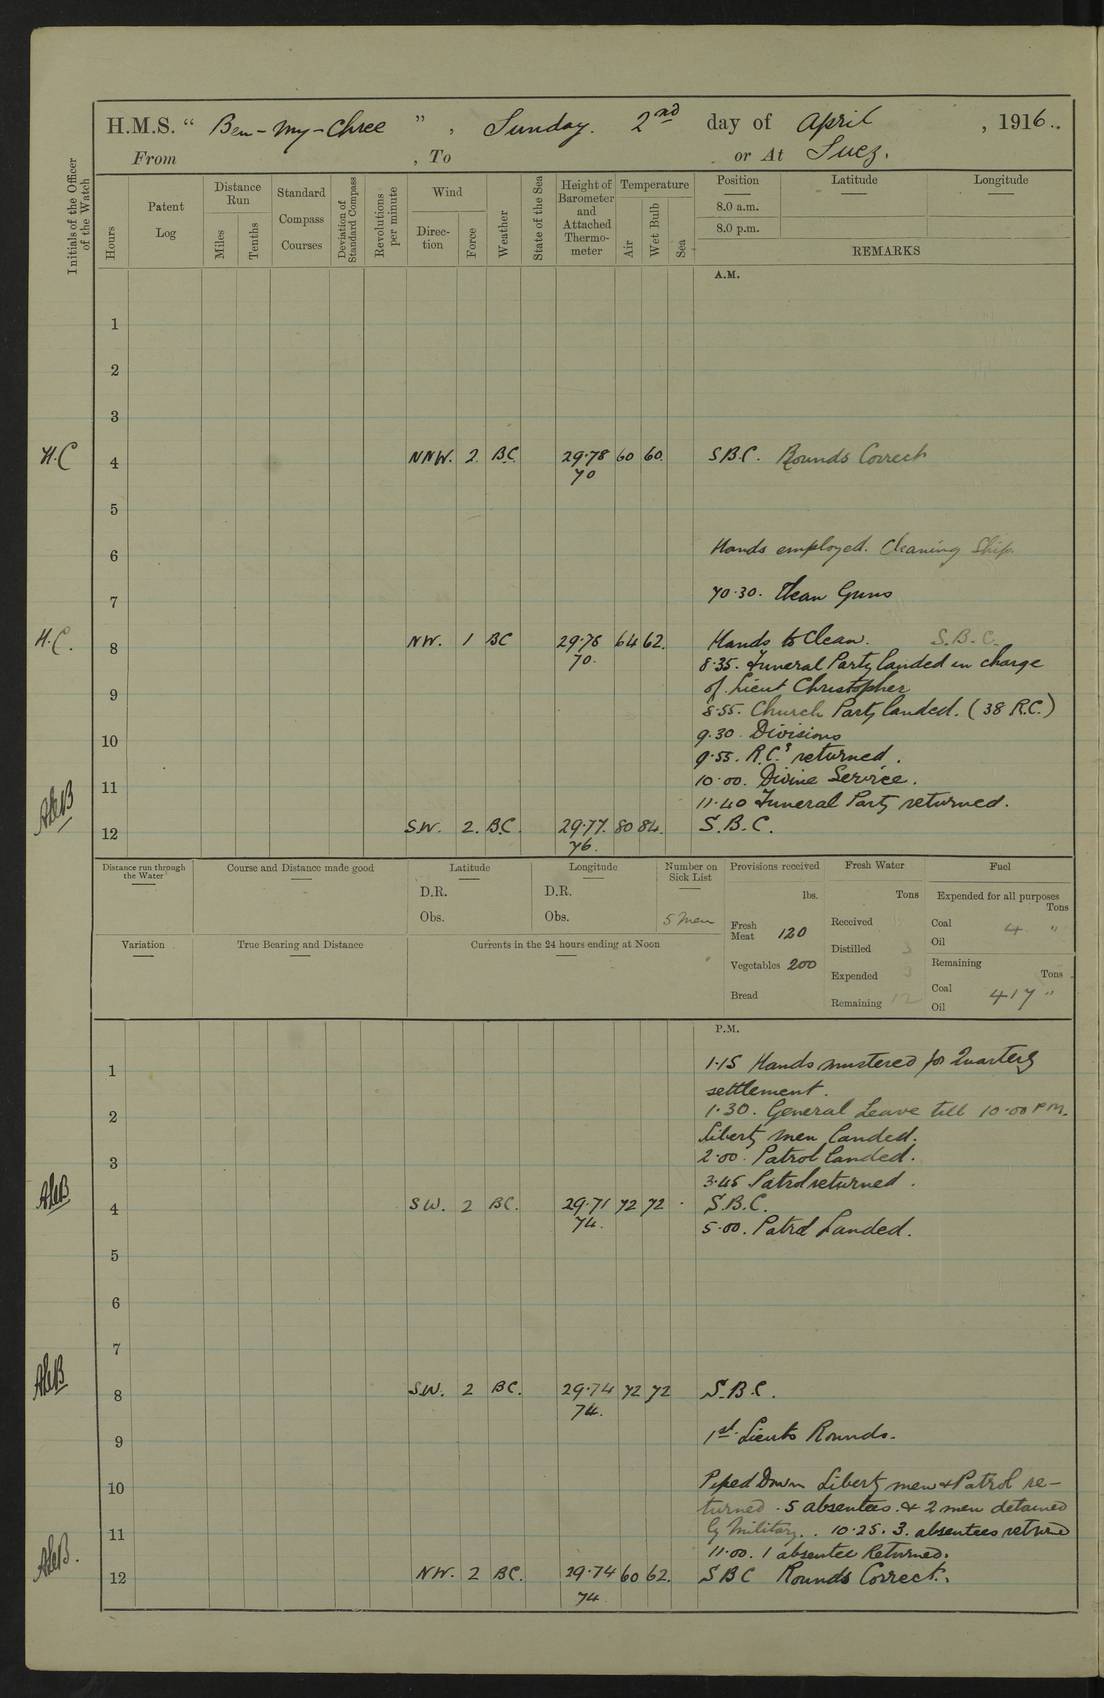 H.M.S. " Ben-my-Chree ", Sunday. 2nd day of April, 1916.
From , To or At Suez.
Initials of the Officer of the Watch
Hours
Patent Log
Distance Run
Miles
Tenths
Standard Compass Courses
Deviation of Standard Compass
Revolutions per minute
Wind
Direction
Force
Weather
State of the Sea
Height of Barometer and Attached Thermometer
Temperature
Air
Wet Bulb
Sea
Position Latitude Longitude
8.0 a.m.
8.0 p.m.
REMARKS
A.M.
1
2
3
H.C 4 NNW. 2 BC 29.78 60 60. S.B.C. Rounds Correct
70
5
6 Hands employed. Cleaning Ship.
7 70.30. Clean Guns
H.C. 8 NW. 1 BC 29.78 64 62. Hands to Clean. S.B.C.
70.
8.35. Funeral Party landed in charge
9 of Lieut Christopher
8.55. Church Party landed. (38 R.C.)
9.30. Divisions
10 9.55. R.C.s returned.
10.00. Divine Service.
11 11.40 Funeral Party returned.
12 S.W. 2. B.C. 29.77. 80 84. S.B.C.
76.
Distance run through the Water
Course and Distance made good
Latitude
D.R.
Obs.
Longitude
D.R.
Obs.
Number on Sick List
5 men
Provisions received
lbs.
Fresh Meat 120
Vegetables 200
Bread
Fresh Water
Tons
Received
Distilled 3
Expended 3
Remaining 12
Fuel
Expended for all purposes
Tons
Coal 4 "
Oil
Remaining
Tons
Coal 417 "
Oil
Variation
True Bearing and Distance
Currents in the 24 hours ending at Noon
P.M.
1 1.15 Hands mustered for Quarterly
settlement.
2 1.30. General Leave till 10.00 P.M.
Liberty men landed.
3 2.00. Patrol landed.
3.45 Patrol returned.
4 SW. 2 BC. 29.71 72 72 S.B.C.
74.
5.00. Patrol Landed.
5
6
7
8 S.W. 2 BC. 29.74 72 72 S.B.C.
74.
9 1st Lieuts Rounds.
10 Piped Down Liberty men & Patrol re-
turned. 5 absentees. & 2 men detained
11 by Military. 10.25. 3. absentees returned
11.00. 1 absentee Returned.
12 NW. 2 BC. 29.74 60 62. SBC Rounds Correct.
74